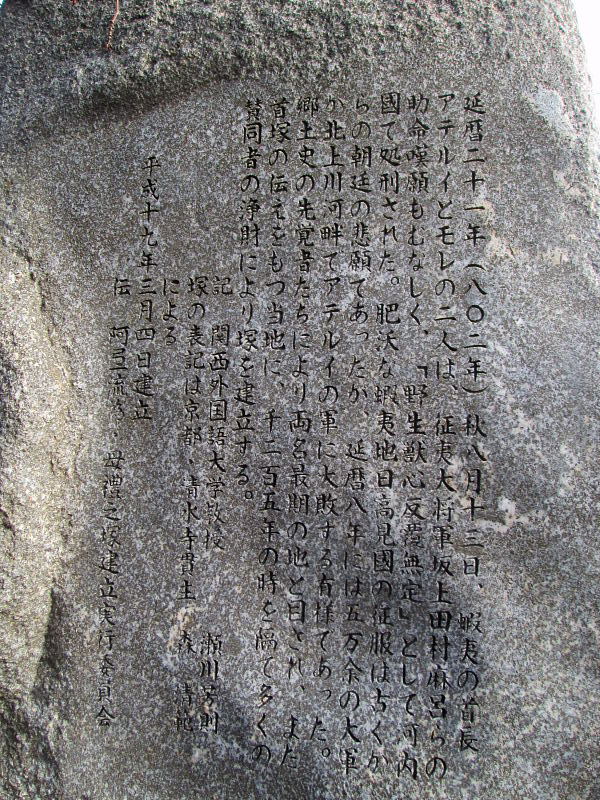 延暦二十一年（八〇二年）秋八月十三日、蝦夷の首長
アテルイとモレの二人は、征夷大将軍坂上田村麻呂らの
助命嘆願もむなしく、「野生獣心反覆無定」として河内
國で処刑された。肥沃な蝦夷地日高見國の征服は古くか
らの朝廷の悲願であったが、延暦八年には五万余の大軍
が北上川河畔でアテルイの軍に大敗する有様であった。
郷土史の先覚者たちにより両名最期の地と目され、また
首塚の伝えをもつ当地に、千二百五年の時を隔て多くの
賛同者の浄財により塚を建立する。
記 関西外国語大学教授 瀬川芳則
塚の表記は京都、清水寺貫主 森 清範
による
平成十九年三月四日建立
伝 阿弖流為、母禮之塚建立実行委員会